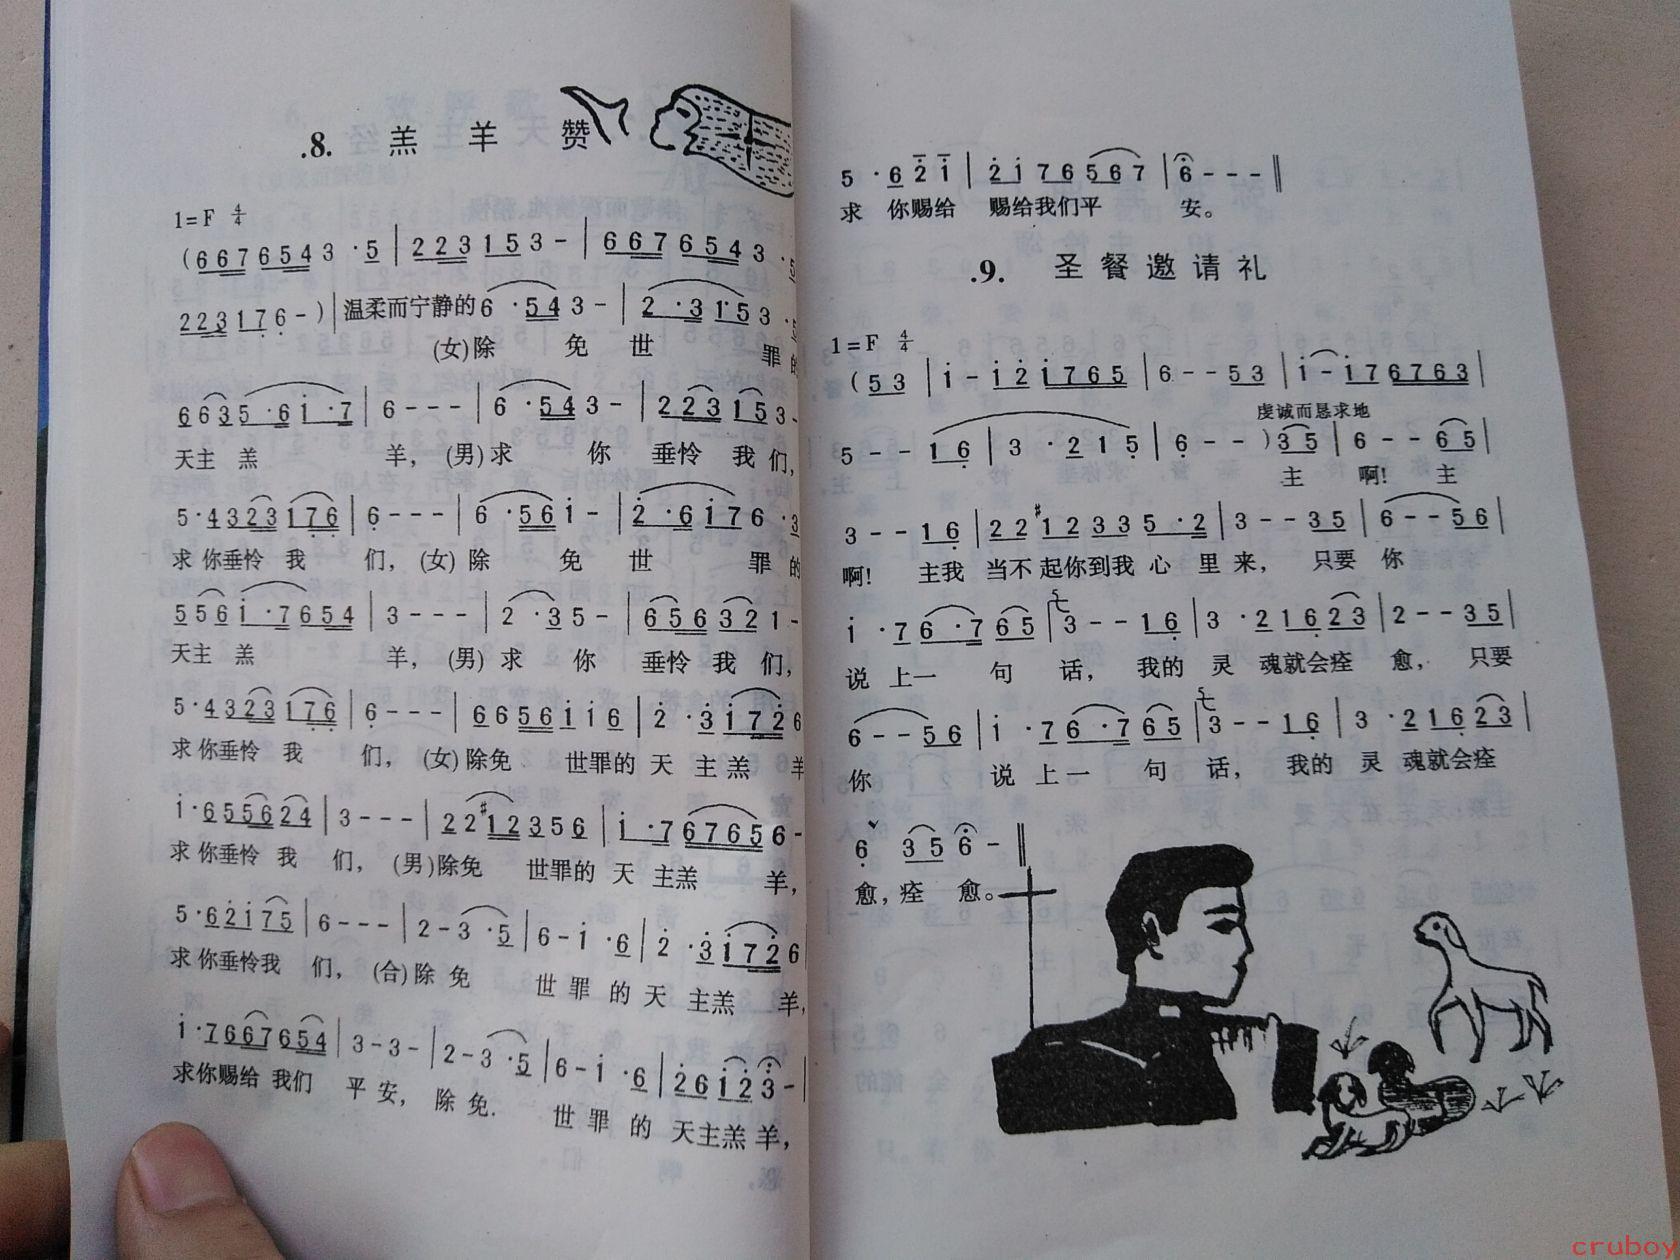 .8. 羔 羊 赞
1=F 4/4
(667 6543 ·5 | 223 153- | 667 6543 ·5
223 176-) | 温柔而宁静的 6 ·543- | 2 ·3153 ·5
(女)除 免 世 罪的
6635 ·6i ·7 | 6--- | 6 ·543- | 223153-
天主 羔 羊, (男)求 你 垂怜 我们,
5·4323176 | 6--- | 6 ·561- | 2 ·6i76 ·3
求 你垂怜 我 们, (女)除 免 世 罪的
556i ·7654 | 3--- | 2 ·35- | 6563 21-
天主 羔 羊, (男)求 你 垂怜 我 们,
5·4323176 | 6--- | 6656ii6 | 2 ·3i726
求 你垂怜 我 们, (女)除免 世罪的 天 主羔 羊
i·6556 24 | 3--- | 22#12356 | i ·767656-
求 你垂怜 我 们, (男)除免 世罪的 天 主羔 羊,
5·62i75 | 6--- | 2-3 ·5 | 6-i ·6 | 2 ·3i726
求 你垂怜我 们, (合)除 免 世 罪 的 天 主羔 羊,
i·7667654 | 3-3- | 2-3 ·5 | 6-i ·6 | 26i23-
求你赐给 我们 平 安, 除 免. 世 罪 的 天主羔 羊,
5 ·62i | 2i 76 567 | 6--- ‖
求 你赐给 赐给我们平 安。
.9. 圣 餐 邀 请 礼
1=F 4/4
(53 | i-i2i765 | 6--53 | i-i76763 |
虔诚而恳求地
5--16 | 3 ·3215 | 6--)35 | 6--65 |
主 啊! 主
3--16 | 22#12335 ·2 | 3--35 | 6--56 |
啊! 主我 当不起你到我 心 里 来, 只要 你
i ·76 ·765 | 3--16 | 3 ·21623 | 2--35 |
说 上一 句 话, 我的 灵 魂就会痊 愈, 只要
6--56 | i ·76 ·765 | 3--16 | 3 ·21623 |
你 说 上一 句 话, 我的 灵 魂就会痊
6 35 6- ‖
愈,痊 愈。
cruboy